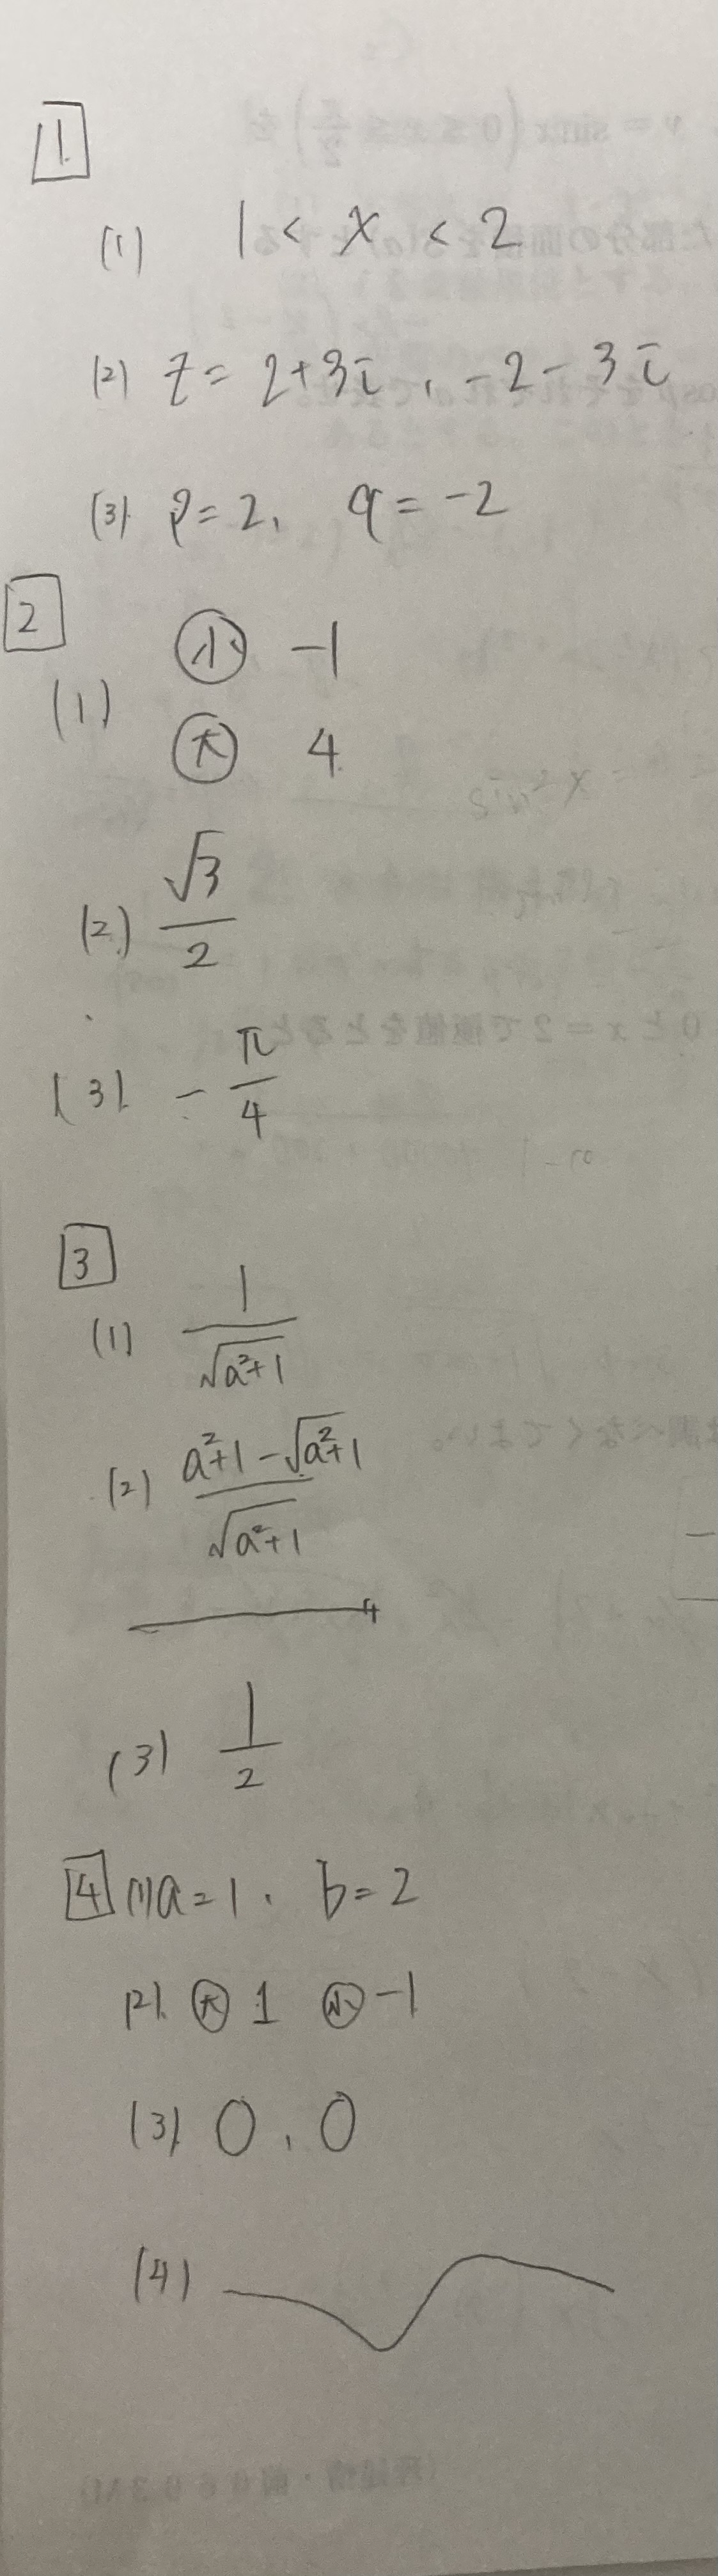 1
(1) 1 < x < 2
(2) z = 2+3i, -2-3i
(3) p = 2, q = -2
2
(1) 小 -1
大 4
(2) √3/2
(3) -π/4
3
(1) 1/√(a²+1)
(2) (a²+1-√(a²+1))/√(a²+1)
(3) 1/2
4 (1) a=1. b=2
(2) 大 1 小 -1
(3) 0, 0
(4)